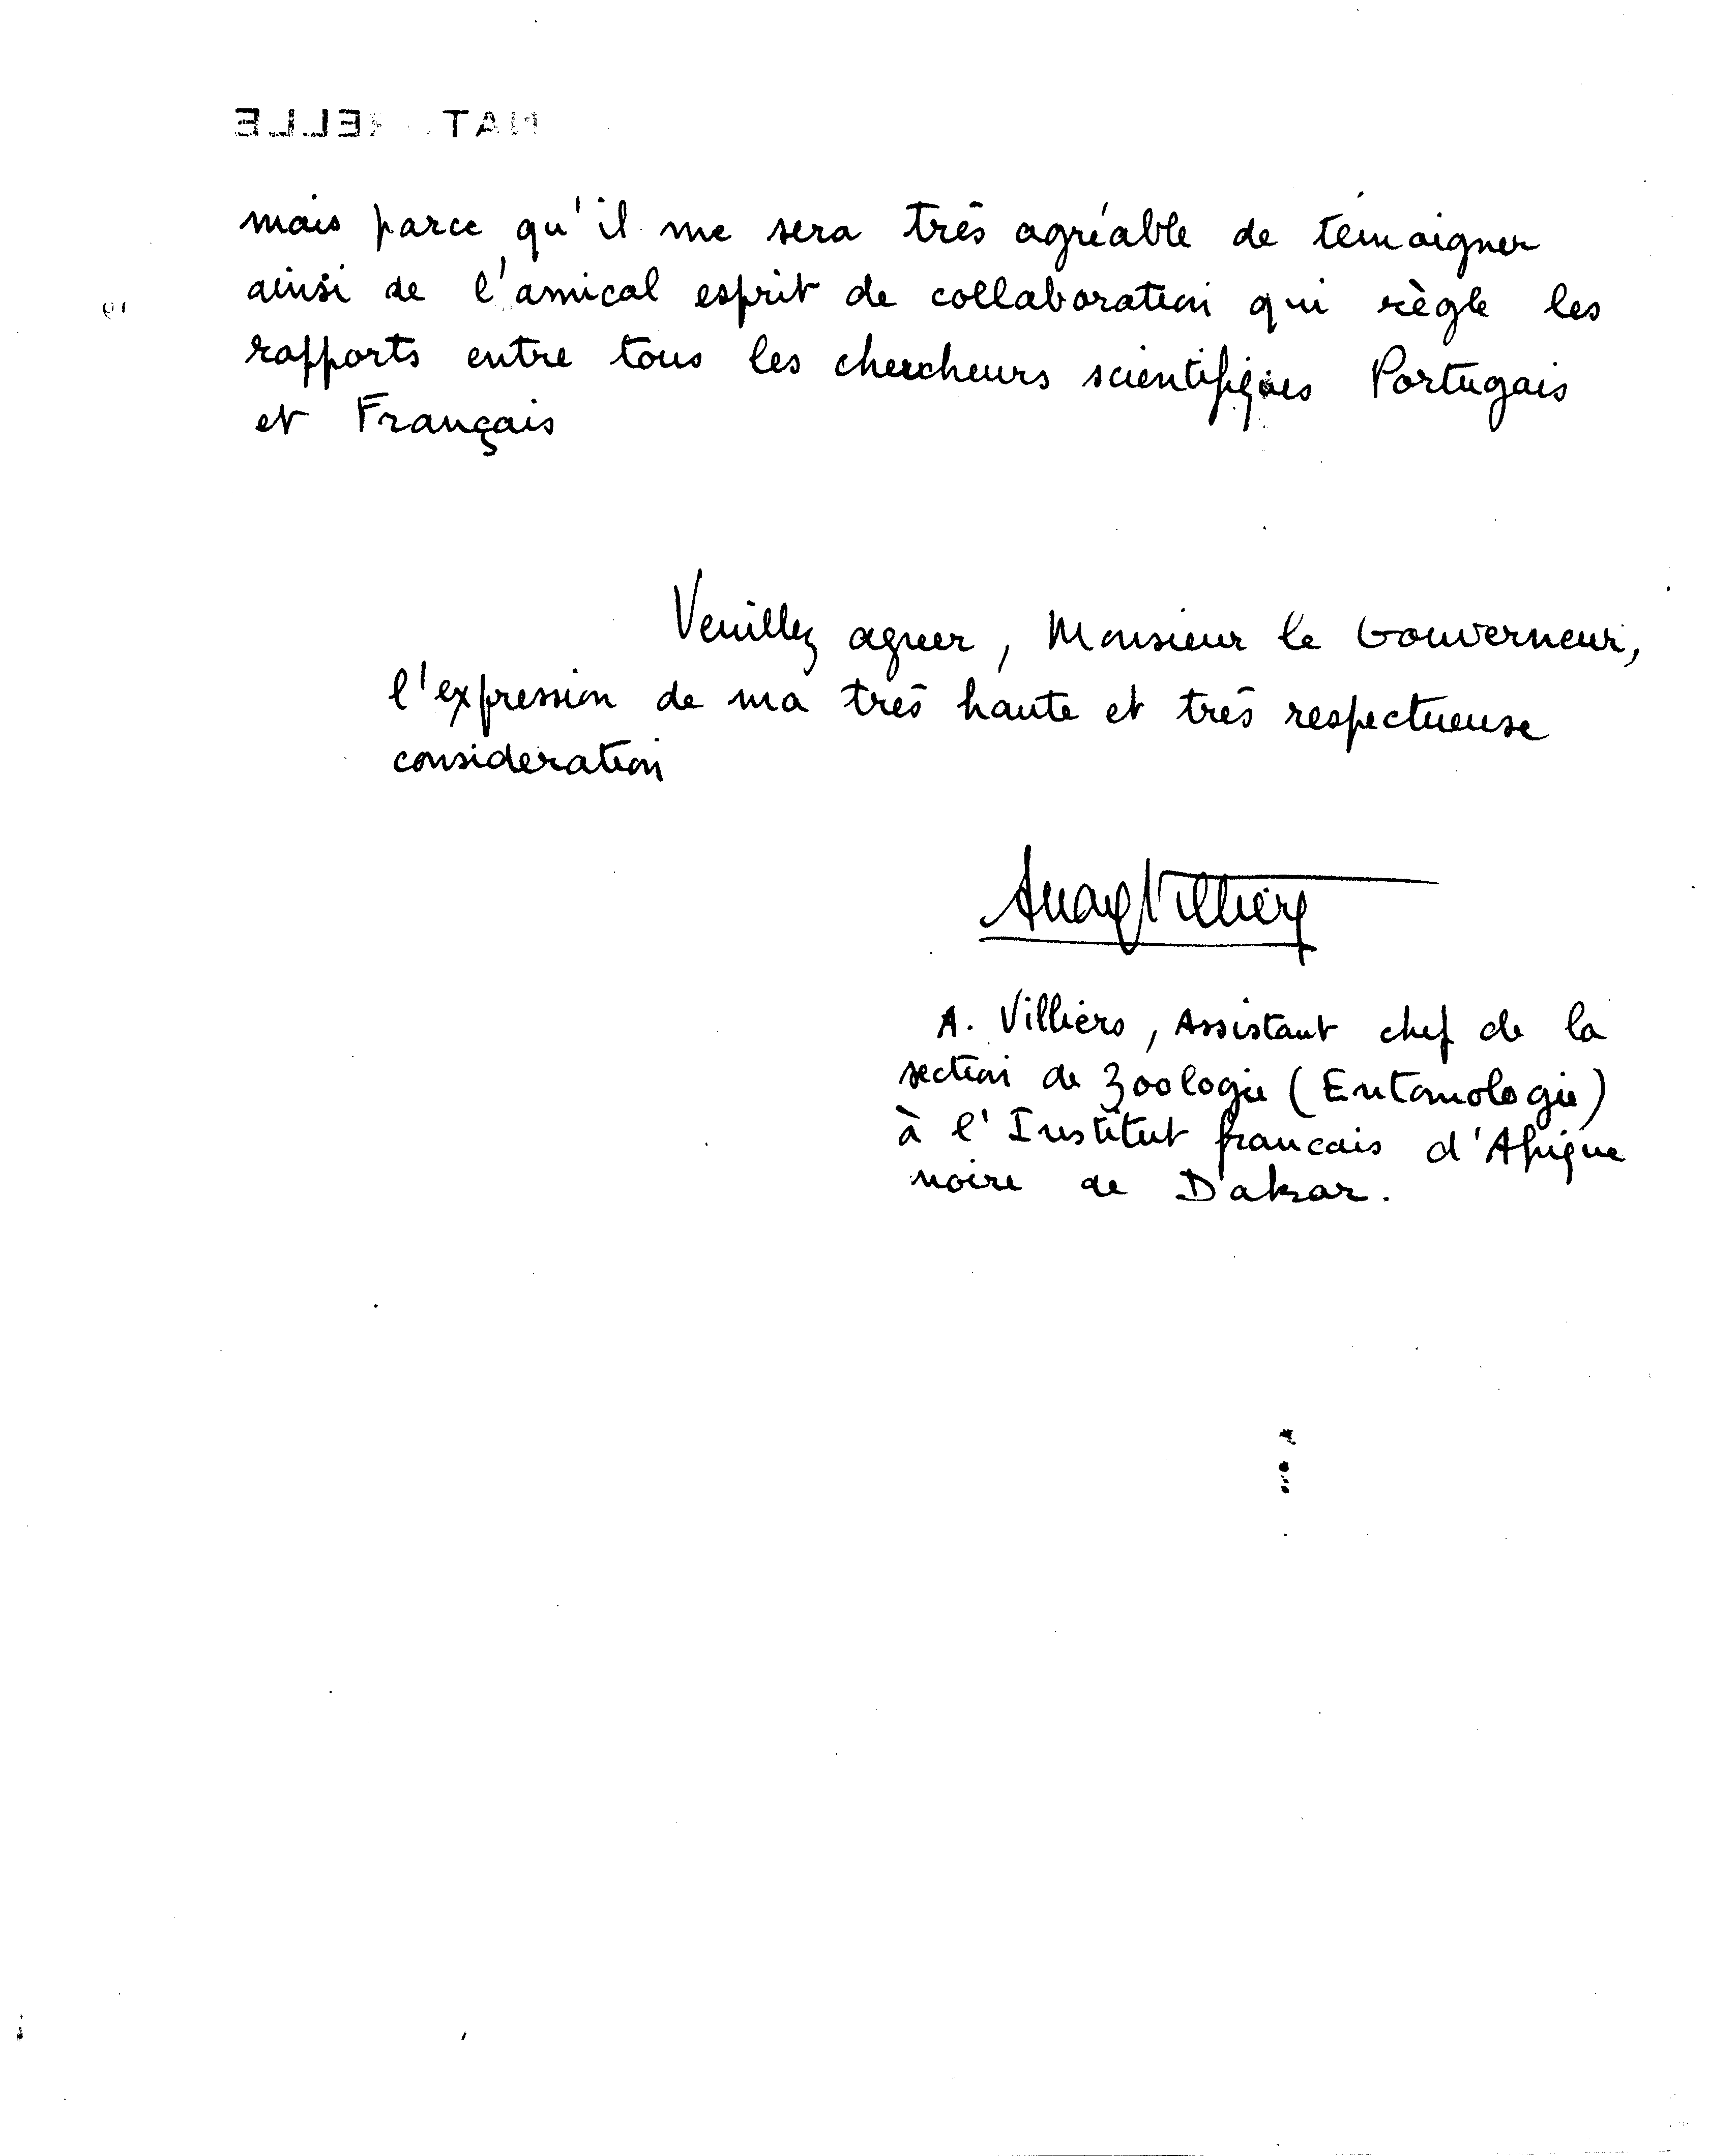 mais parce qu'il me sera très agréable de témoigner
ainsi de l'amical esprit de collaboration qui règle les
rapports entre tous les chercheurs scientifiques Portugais
et Français
Veuillez agreer, Monsieur le Gouverneur,
l'expression de ma très haute et très respectueuse
consideration
A. Villiers, Assistant chef de la
section de Zoologie (Entomologie)
à l'Institut francais d'Afrique
noire de Dakar.